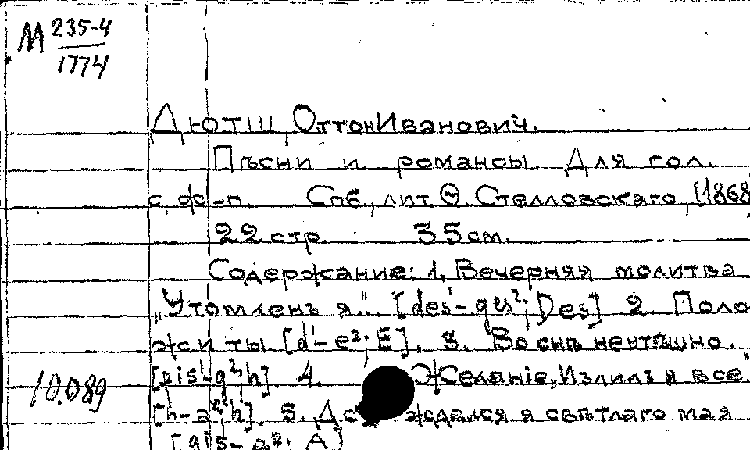 М 235-4
1774
Дютш, Оттон Иванович.
Пѣсни и романсы. Для гол.
с ф-п. Спб., лит. Ѳ. Стелловскаго, [1868
22 стр. 35 см.
Содержание: 1. Вечерняя молитва
„Утомленъ я". [des¹-ges²; Des] 2. Поло
жи ты [d¹-e²; E]. 3. Во снѣ неутѣшно.
g²; h] 4. Желаніе „Излилъ я все
10.089
[h-a²; h]. 5. ждался я свѣтлаго мая
[gis-a²; A]